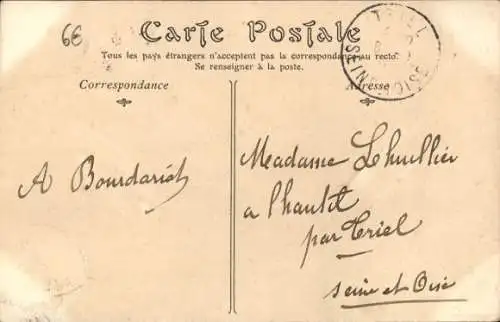 6€
Carte Postale
Tous les pays étrangers n'acceptent pas la correspondance au recto.
Se renseigner à la poste.
Correspondance
Adresse
TRIEL
SEINE-ET-OISE
A Bourdariat
Madame Lhuillier
a l'hautil
par Triel
seine et Oise